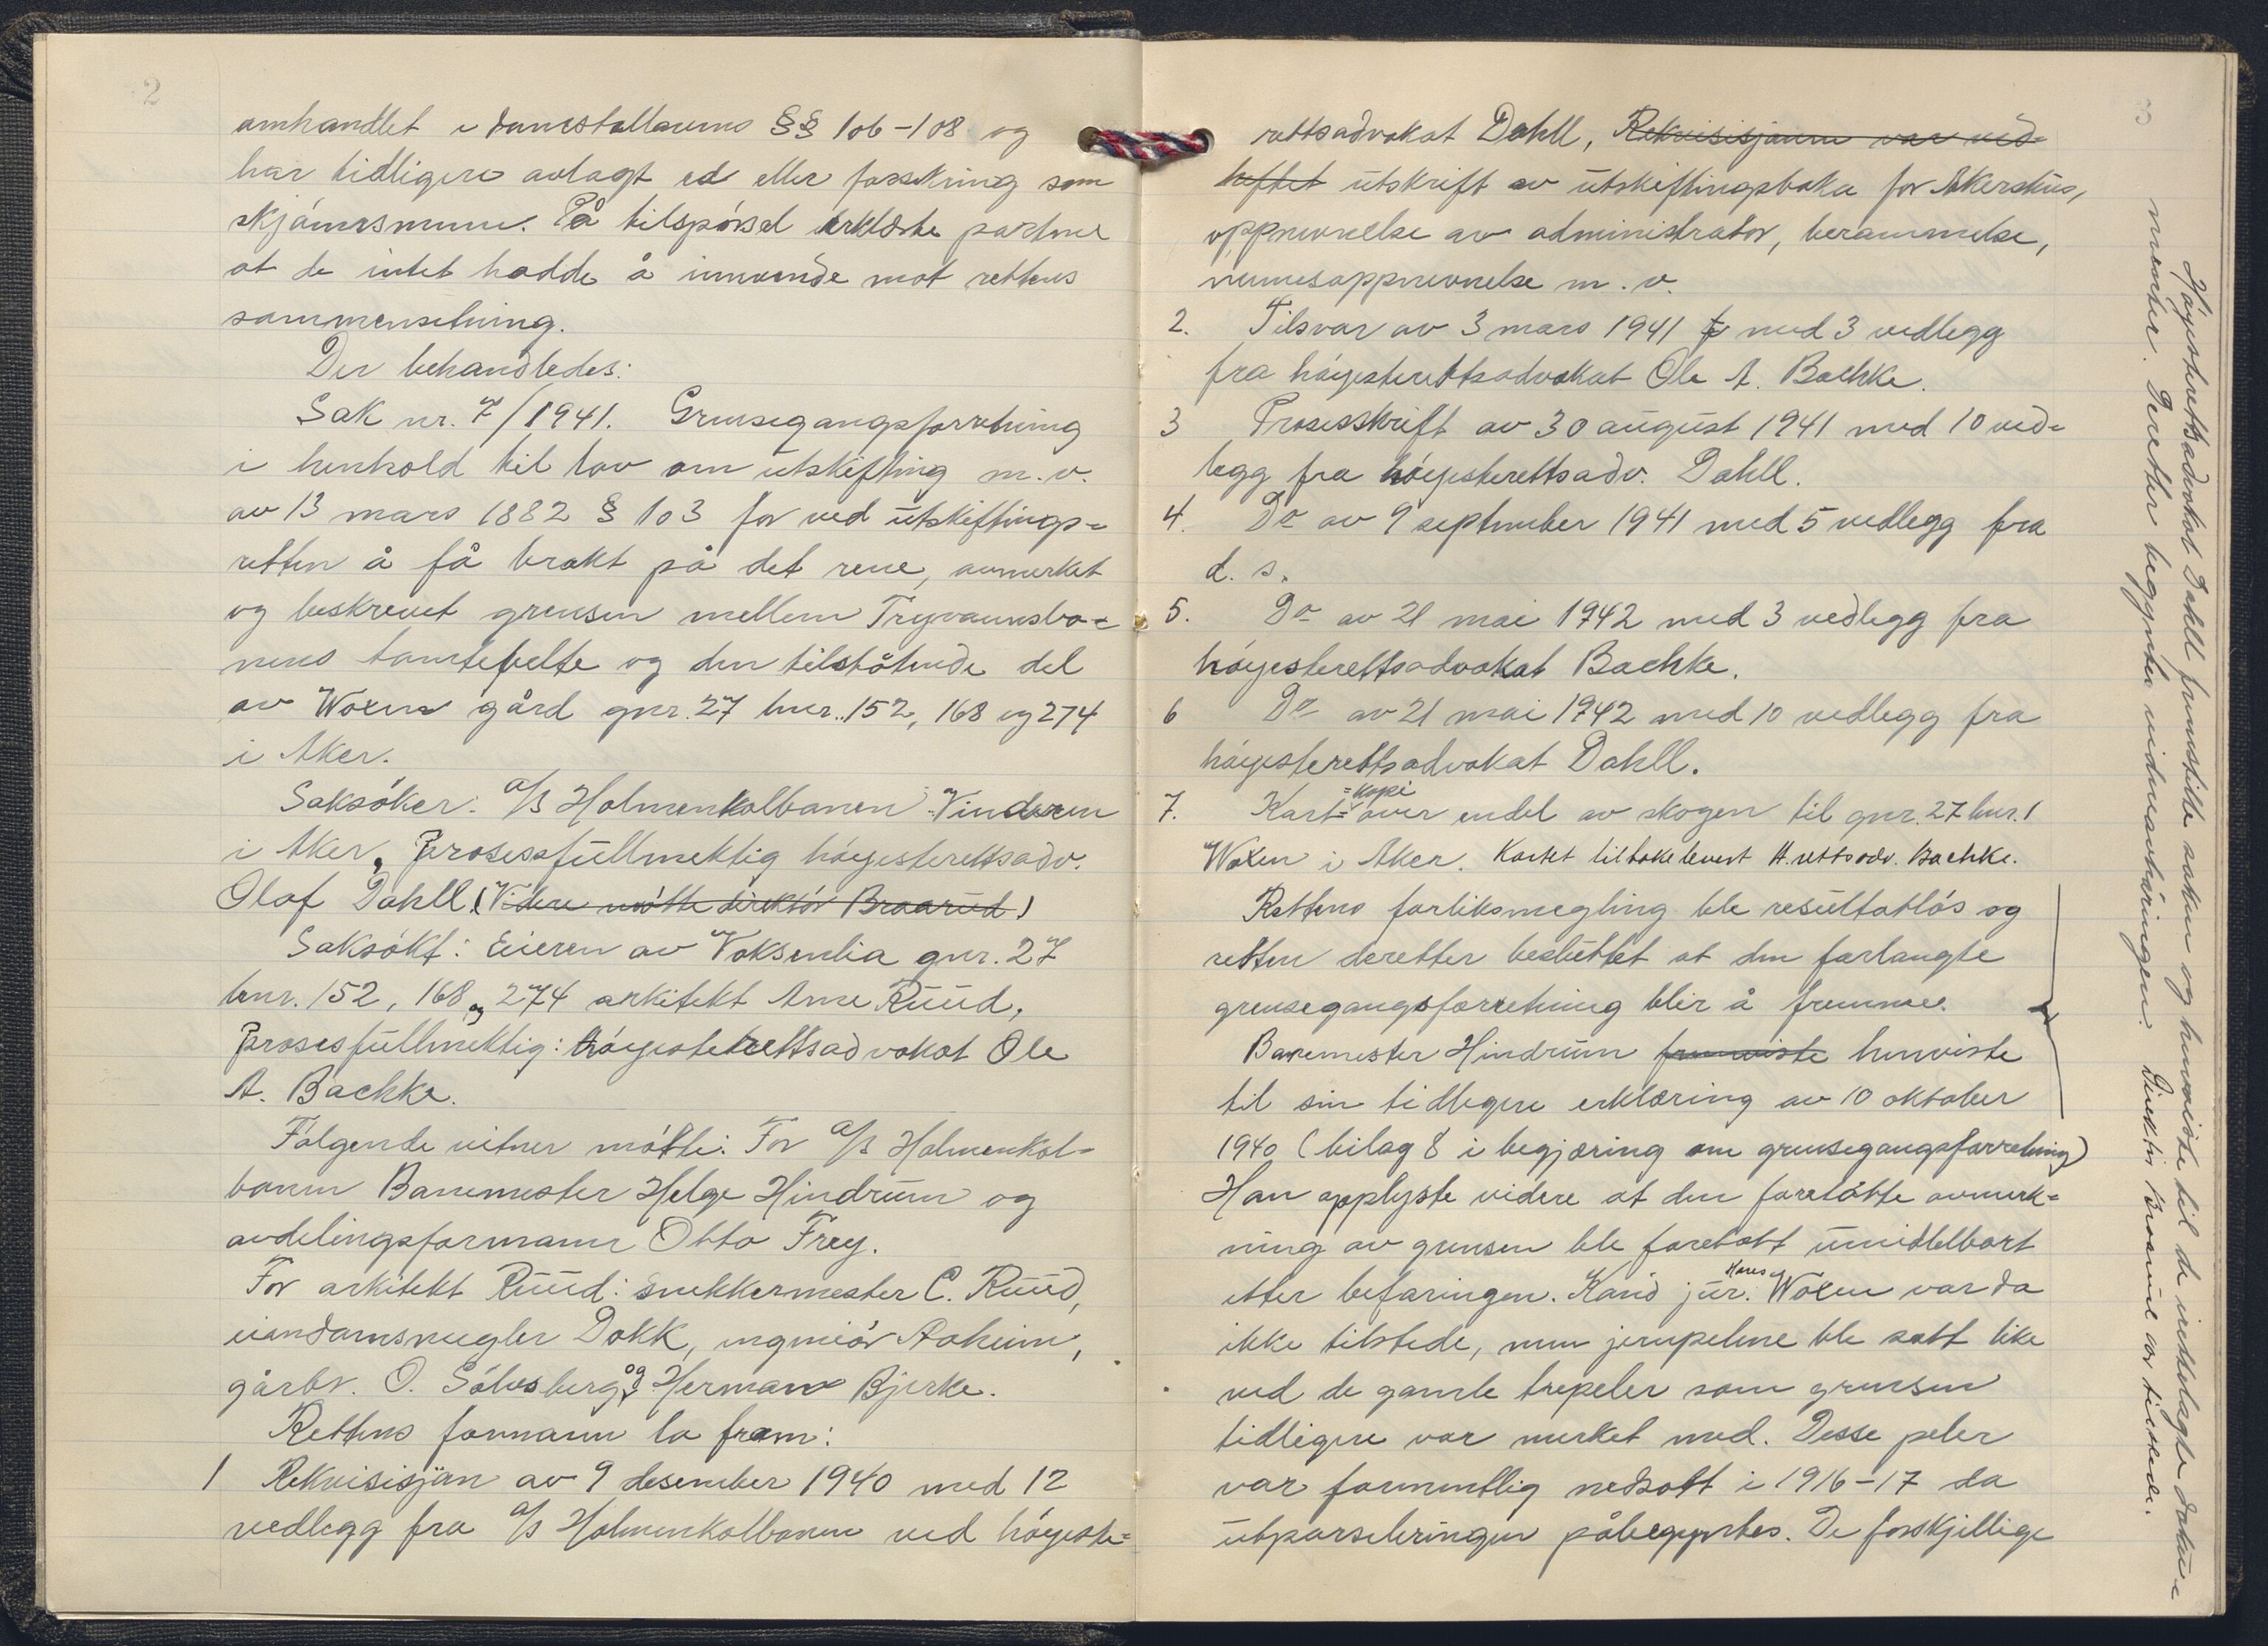 2
omhandlet i domstollovens §§ 106-108 og
har tidligere avlagt ed eller forsikring som
skjönnsmenn. På tilspörsel erklærte partene
at de intet hadde å innvende mot rettens
sammensetning.
Der behandledes:
Sak nr. 7/1941. Grensegangsforretning
i henhold til lov om utskifting m.v.
av 13 mars 1882 § 103 for ved utskiftings-
retten å få brakt på det rene, avmerket
og beskrevet grensen mellem Tryvannsba-
nens tomtefelte og den tilstötende del
av Woxen gård gnr. 27 bnr. 152, 168 og 274
i Aker.
Saksöker: A/S Holmenkolbanen Vinderen
i Aker, Prosessfullmektig höyesterettsadv.
Olaf Dahll. (Videre mötte direktör Braarud)
Saksökt: Eieren av Voksenlia gnr. 27
bnr. 152, 168 og 274 arkitekt Arne Ruud,
Prosesfullmektig: höyesterettsadvokat Ole
A. Bachke.
Fölgende vitner mötte: For A/S Holmenkol-
banen Banemester Helge Hindrum og
avdelingsformann Otto Frey.
For arkitekt Ruud: Snekkermester C. Ruud,
eiendomsmegler Dokk, ingeniör Aaheim,
gårbr. O. Sölvsberg og Herman Bjerke.
Rettens formann la fram:
1 Rekvisisjon av 9 desember 1940 med 12
vedlegg fra A/S Holmenkolbanen ved höyeste-
3
rettsadvokat Dahll, Rekvisisjonen var ved-
heftet utskrift av utskiftingsboka for Akershus,
oppnevnelse av administrator, berammelse,
nemnesoppnevnelse m.v.
2. Tilsvar av 3 mars 1941 med 3 vedlegg
fra höyesterettsadvokat Ole A. Bachke.
3 Prosesskrift av 30 august 1941 med 10 ved-
legg fra höyesterettsadv. Dahll.
4. Do av 9 september 1941 med 5 vedlegg fra
d. s.
5. Do av 21 mai 1942 med 3 vedlegg fra
höyesterettsadvokat Bachke.
6 Do av 21 mai 1942 med 10 vedlegg fra
höyesterettsadvokat Dahll.
7. Kart-kopi over endel av skogen til gnr. 27 bnr. 1
Woxen i Aker. Kartet tilbakelevert H.rettsadv. Bachke.
Rettens forliksmegling ble resultatlös og
retten deretter besluttet at den forlangte
grensegangsforretning blir å fremme.
Banemester Hindrum fremviste henviste
til sin tidligere erklæring av 10 oktober
1940 (bilag 8 i begjæring om grensegangsforretning)
Han opplyste videre at den foretatte avmerk-
ning av grensen ble foretatt umiddelbart
etter befaringen. Kand jur. Hans Woxen var da
ikke tilstede, men jernpelene ble satt like
ved de gamle trepeler som grensen
tidligere var merket med. Disse peler
var formentlig nedsatt i 1916-17 da
utparseleringen påbegyntes. De forskjellige
Höyesterettsadvokat Dahll fremstillte saken og henviste til de innelagte doku-
menter. Deretter begyntes vidneavhöringen. Direktör Braarud var tilstede.